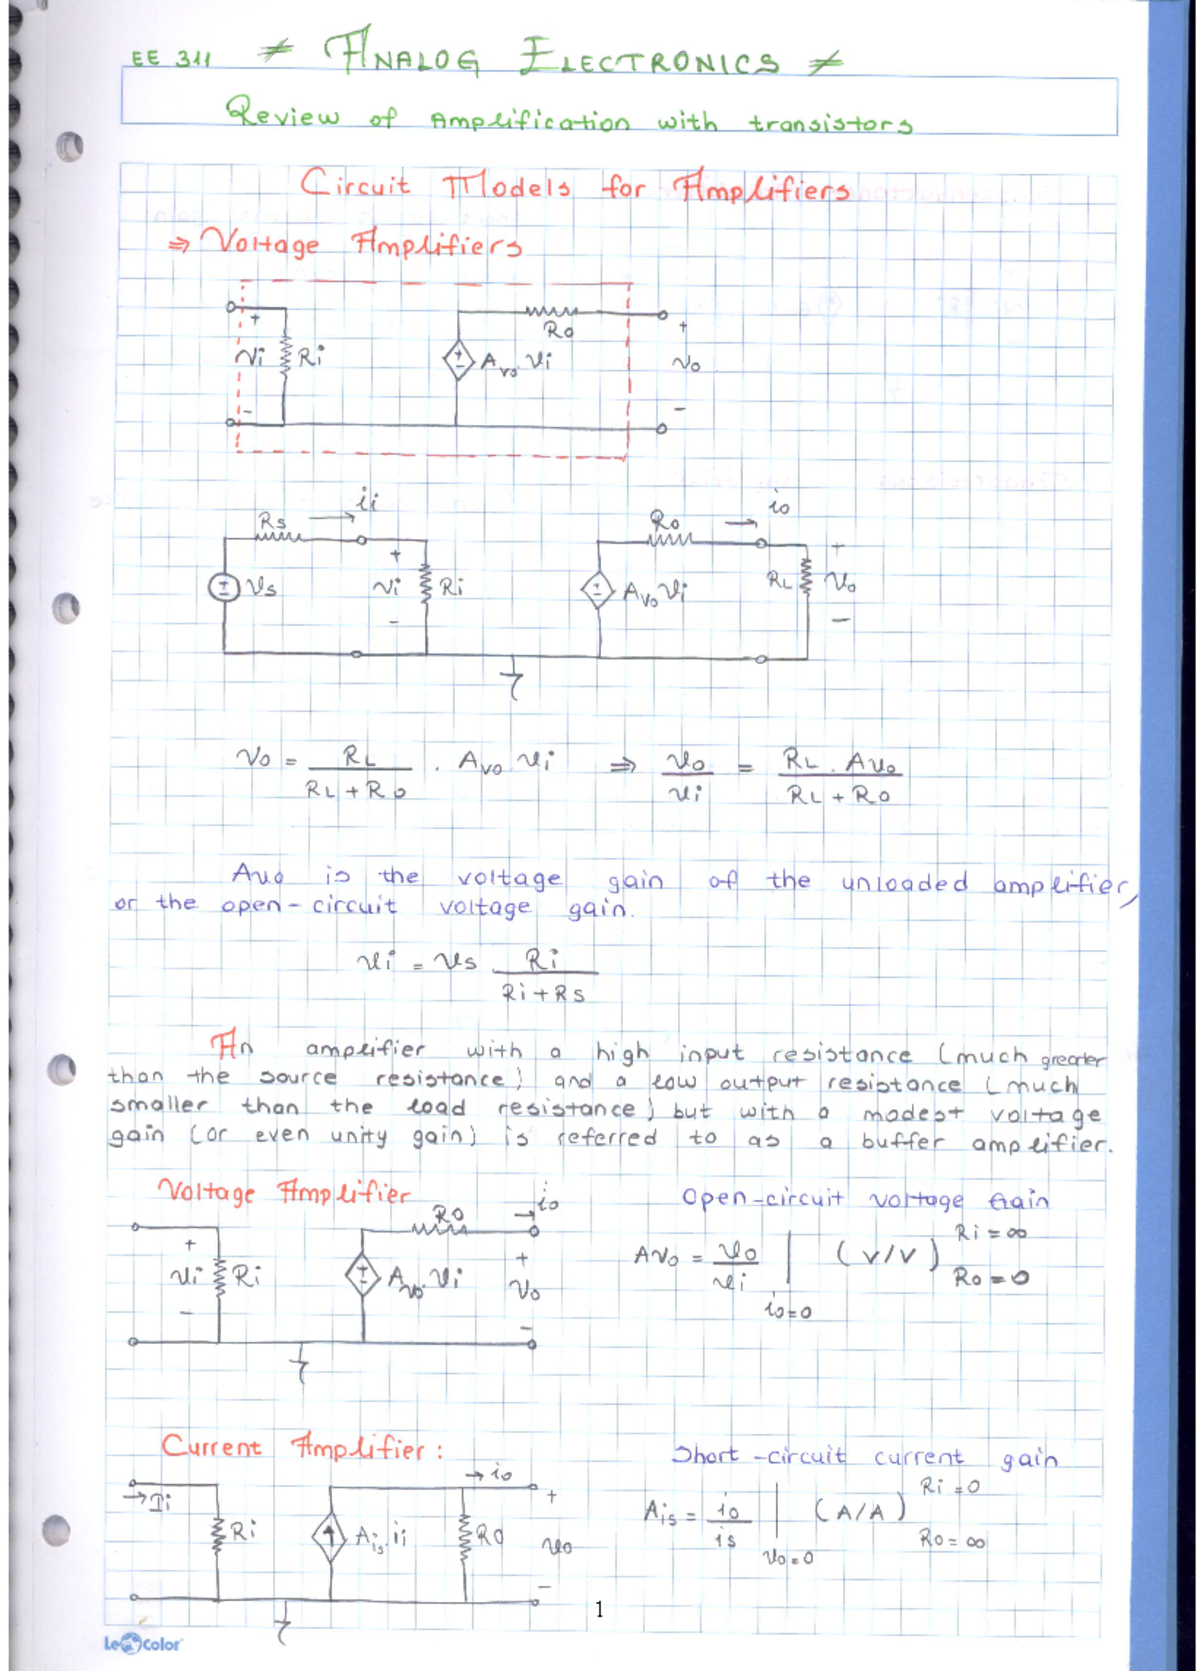 EE 311 * ANALOG ELECTRONICS *
Review of Amplification with transistors
Circuit Models for Amplifiers
⇒ Voltage Amplifiers
+ Ro +
Vi Ri + - Avo Vi Vo
- -
Rs → ii Ro → io
+ +
+ - Vs Vi Ri + - Avo Vi RL Vo
- -
Vo = RL / (RL + Ro) . Avo Vi ⇒ Vo / Vi = RL . Avo / (RL + Ro)
Avo is the voltage gain of the unloaded amplifier,
or the open-circuit voltage gain.
Vi = Vs Ri / (Ri + Rs)
An amplifier with a high input resistance (much greater
than the source resistance) and a low output resistance (much
smaller than the load resistance) but with a modest voltage
gain (or even unity gain) is referred to as a buffer amplifier.
Voltage Amplifier Ro → io Open-circuit voltage Gain
+ + Ri = ∞
Vi Ri + - Avo Vi Vo Avo = Vo / Vi | io=0 (V/V) Ro = 0
- -
Current Amplifier: Short-circuit current gain
→ Ii → io + Ri = 0
Ri Ais ii Ro Vo Ais = io / is | Vo=0 (A/A) Ro = ∞
-
1
LeColor